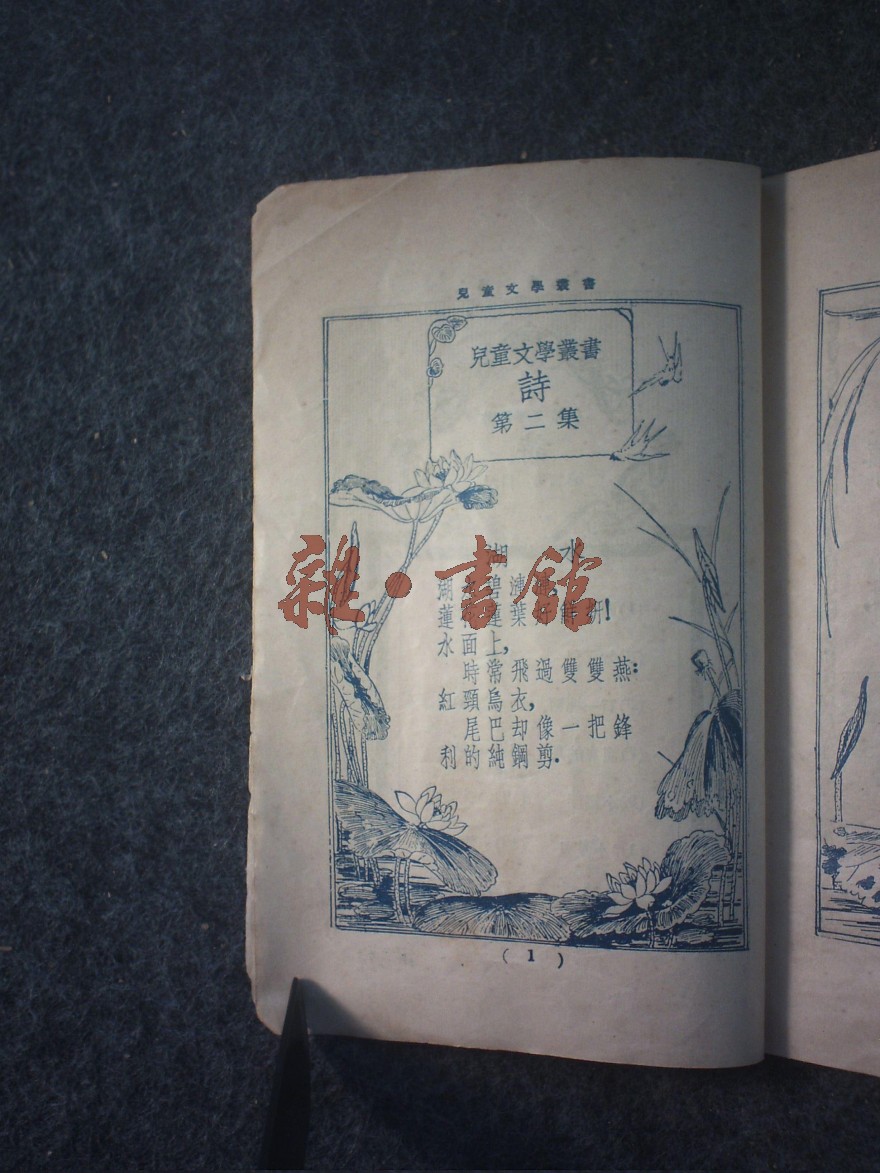 兒童文學叢書
兒童文學叢書
詩
第二集
湖 水
湖 碧漣
蓮 蓮葉 鮮妍!
水面上,
時常飛過雙雙燕:
紅頸烏衣,
尾巴却像一把鋒
利的純鋼剪.
(1)
雜·書館